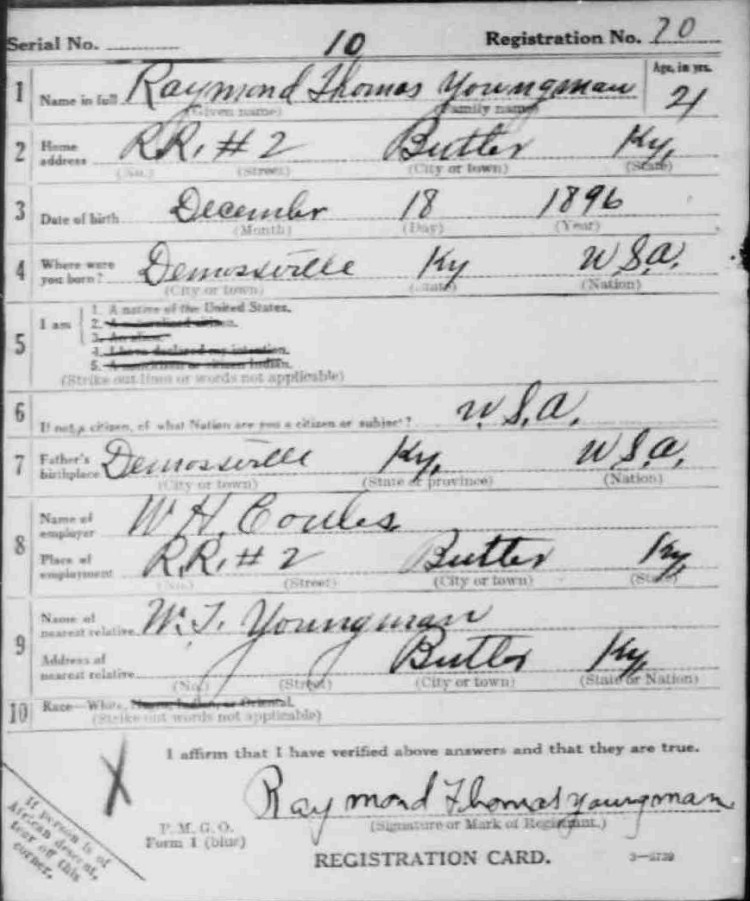 Serial No. 10 Registration No. 20
1 Name in full Raymond Thomas Youngman Age, in yrs. 21
(Given name) (Family name)
2 Home address RR. # 2 Butler Ky.
(No.) (Street) (City or town) (State)
3 Date of birth December 18 1896
(Month) (Day) (Year)
4 Where were you born? Demossville Ky U.S.A.
(City or town) (State) (Nation)
5 I am
1. A native of the United States.
2. A naturalized citizen.
3. An alien.
4. I have declared my intention.
5. A noncitizen or citizen Indian.
(Strike out lines or words not applicable)
6 If not a citizen, of what Nation are you a citizen or subject? U.S.A.
7 Father's birthplace Demossville Ky. U.S.A.
(City or town) (State or province) (Nation)
8 Name of employer W H. Cowles
Place of employment R.R. # 2 Butler Ky.
(No.) (Street) (City or town) (State)
9 Name of nearest relative W. T. Youngman
Address of nearest relative Butler Ky
(No.) (Street) (City or town) (State or Nation)
10 Race—White, Negro, Indian, or Oriental.
(Strike out words not applicable)
I affirm that I have verified above answers and that they are true.
X
Raymond Thomas Youngman
(Signature or Mark of Registrant.)
P. M. G. O.
Form 1 (blue)
REGISTRATION CARD.
3—5739
If person is of
African descent,
tear off this
corner.